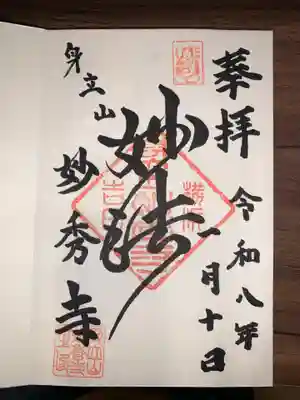 奉拝
令和八年
一月十日
妙法
身立山
妙秀寺